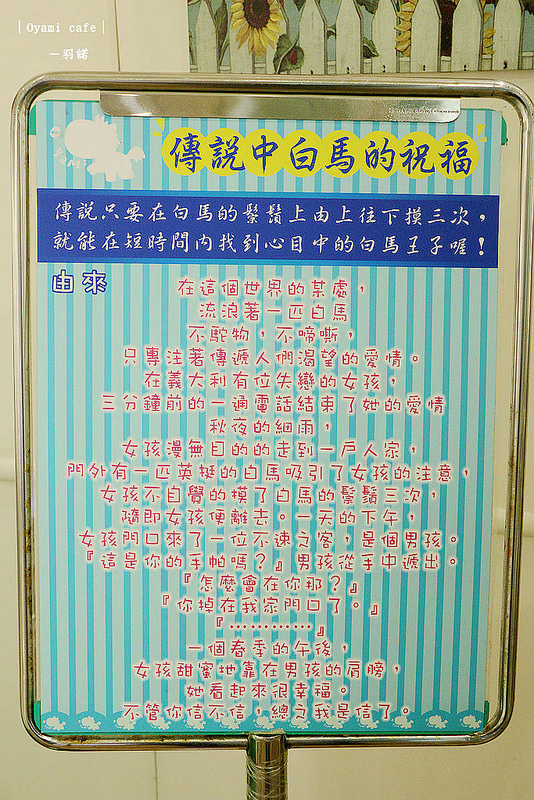 ｜Oyami cafe｜
－羽諾
傳說中白馬的祝福
傳說只要在白馬的鬃鬚上由上往下摸三次，
就能在短時間內找到心目中的白馬王子喔！
由來
在這個世界的某處，
流浪著一匹白馬
不駝物，不啼嘶，
只專注著傳遞人們渴望的愛情。
在義大利有位失戀的女孩，
三分鐘前的一通電話結束了她的愛情
秋夜的細雨，
女孩漫無目的的走到一戶人家，
門外有一匹英挺的白馬吸引了女孩的注意，
女孩不自覺的摸了白馬的鬃鬚三次，
隨即女孩便離去。一天的下午，
女孩門口來了一位不速之客，是個男孩。
『這是你的手帕嗎？』男孩從手中遞出。
『怎麼會在你那？』
『你掉在我家門口了。』
『…………』
一個春季的午後，
女孩甜蜜地靠在男孩的肩膀，
她看起來很幸福。
不管你信不信，總之我是信了。